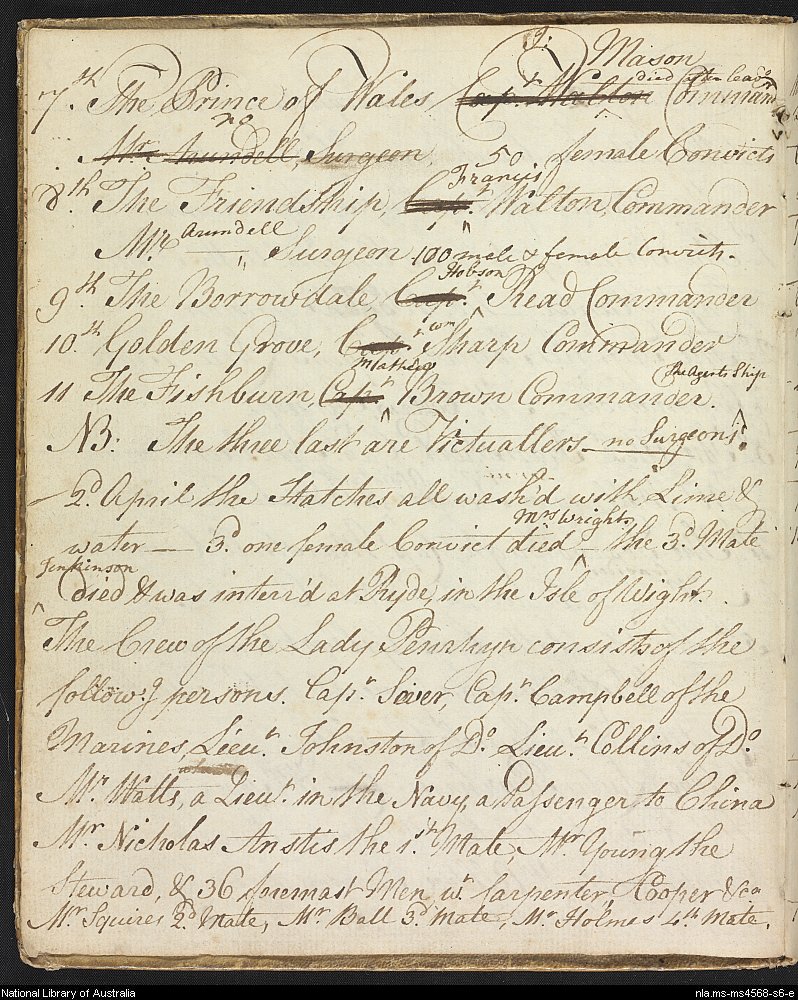 J. Mason
died after leavg
7.th The Prince of Wales Capt. Walton Command
no
Mr. Arundell, Surgeon, 50 female Convicts
Francis
8.th The Friendship, Capt. Walton, Commander
Arundell
Mr. Surgeon 100 male & female Convicts.
Hobson
9.th The Borrowdale Capt. Read Commander
10.th Golden Grove, Capt. Sharp Commander
Mathew The Agents Ship
11 The Fishburn, Capt. Brown Commander.
NB: The three last are Victuallers no Surgeons.
2d. April the Hatches all wash'd with Lime &
Mrs Wright
water — 3d. one female Convict died — the 3d. Mate
Jenkinson
died & was interr'd at Ryde, in the Isle of Wight.
The Crew of the Lady Penrhyn consists of the
follow.g persons. Capn. Sever, Capn. Campbell of the
Marines, Lieut. Johnston of Do. Lieut. Collins of Do.
Mr. Watts, a Lieut. in the Navy, a Passenger to China
Mr. Nicholas Anstis the 1.st Mate, Mr. Young the
Steward, & 36 foremast Men, wt. Carpenter, Cooper &ca
Mr. Squires 2d. Mate, Mr. Ball 3d. Mate, Mr. Holmes 4th Mate.
National Library of Australia nla.ms-ms4568-s6-e